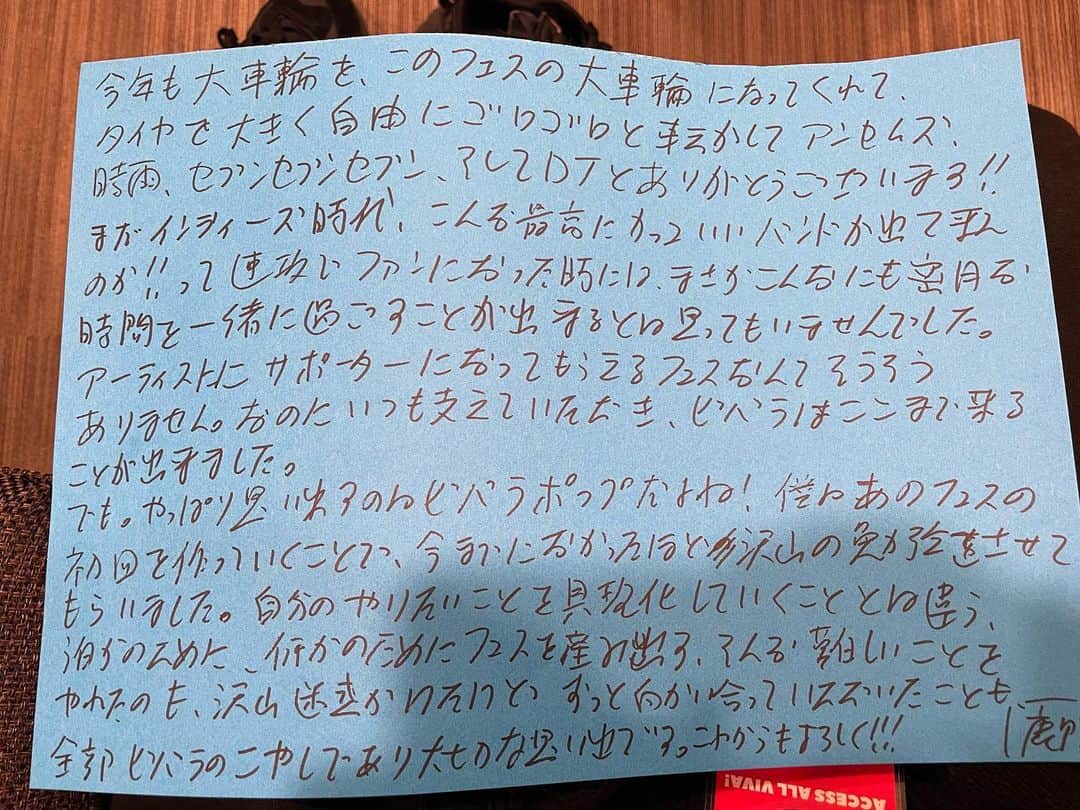 今年も大車輪を、このフェスの大車輪になってくれて、
タイヤで大きく自由にゴロゴロと転がしてアンセムズ、
時雨、セブンセブンセブン、そしてDJとありがとうございます!!
まだインディーズ時代、こんな最高にかっこいいバンドが出て来ん
のか!!って速攻でファンになった時には、まさかこんなにも密月な
時間を一緒に過ごすことが出来るとは思ってもいませんでした。
アーティストにサポーターになってもらえるフェスなんてそうそう
ありません。なのにいつも支えていただき、ビバラはここまで来る
ことが出来ました。
でも。やっぱり思い出すのはビバラポップだよね! 僕はあのフェスの
初回を作っていくことで、今までになかったほど多沢山の勉強をさせて
もらいました。自分のやりたいことを具現化していくこととは違う、
誰かのために、何かのためにフェスを産み出す、そんな難しいことを
やれたのも、沢山迷惑かけたけど、ずっと向かい合っていただいたことも、
全部ビバラのこやしであり大切な思い出です。これからもよろしく!!!
鹿
ACCESS ALL VIVA!